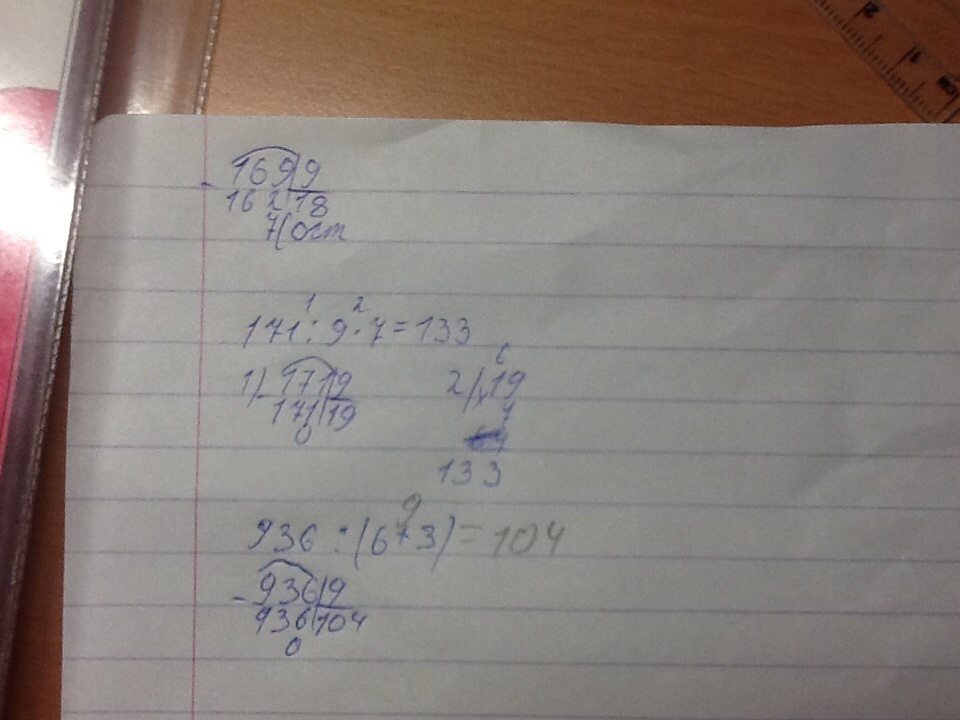 - 169|9
16 2|18
7(ост
1 2
171 : 9 · 7 = 133
6
1) - 171|9 2) x19
171|19 7
0
133
9
936 : (6+3) = 104
- 936|9
936|104
0